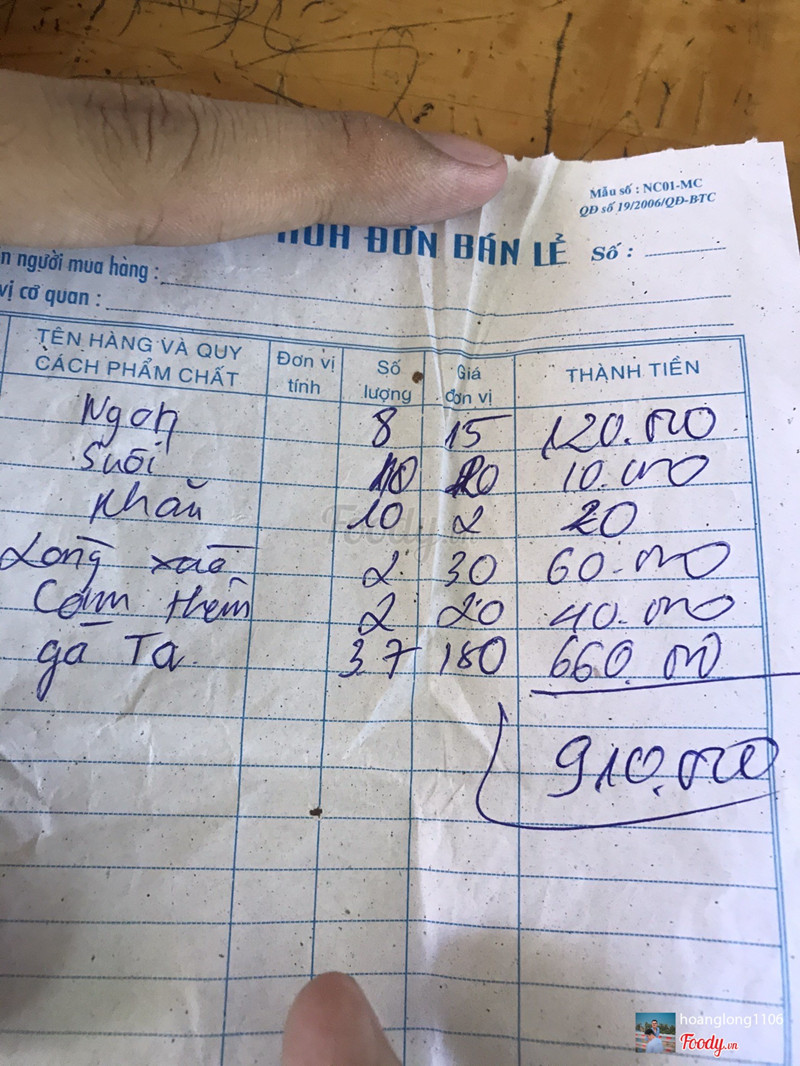 Mẫu số : NC01-MC
QĐ số 19/2006/QĐ-BTC
HÓA ĐƠN BÁN LẺ Số :
n người mua hàng :
vị cơ quan :
TÊN HÀNG VÀ QUY CÁCH PHẨM CHẤT Đơn vị tính Số lượng Giá đơn vị THÀNH TIỀN
Ngọn 8 15 120.000
Suối 10 10.000
Khăn 10 2 20
Lòng xào 2 30 60.000
Cơm thêm 2 20 40.000
gà Ta 3.7 180 660.000
910.000
Foody.vn
hoanglong1106
Foody.vn